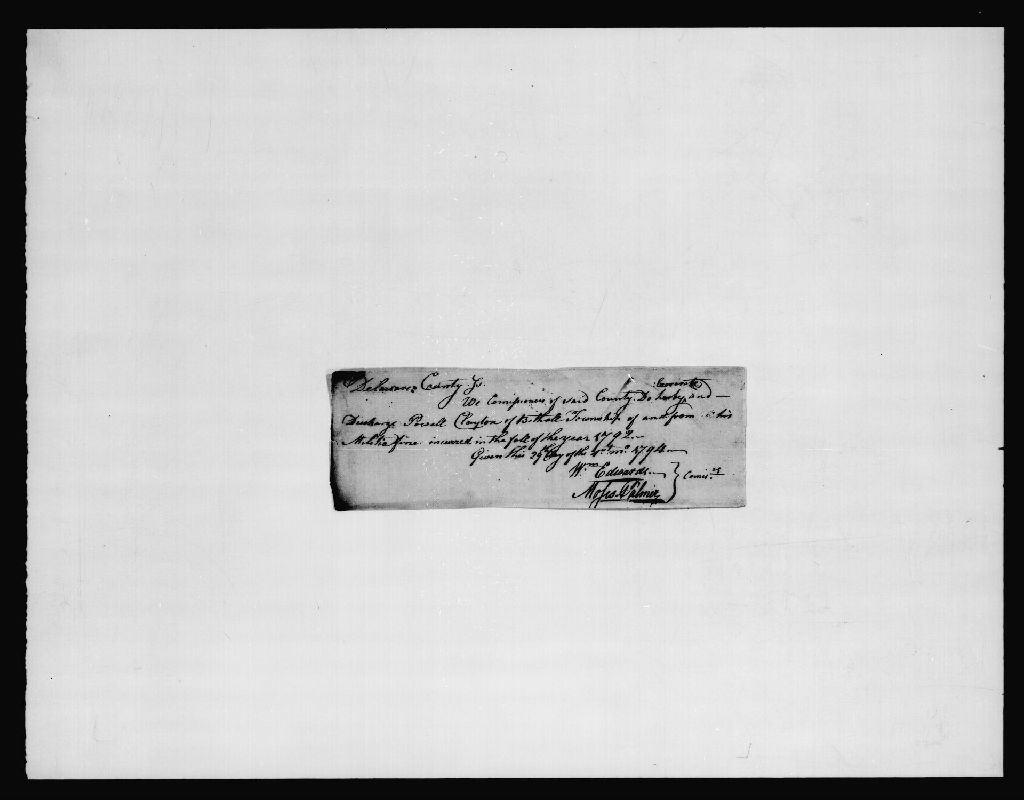 Delaware County Ss.
We Comissioners of said County Do hereby exonerate and —
Discharge Powell Clayton of Bethell Township of and from his
Militia fine incurred in the fall of the year 1792 —
Given this 29 Day of the mo. 1794 —
Wm. Edwards
Moses Palmer } Comis.rs